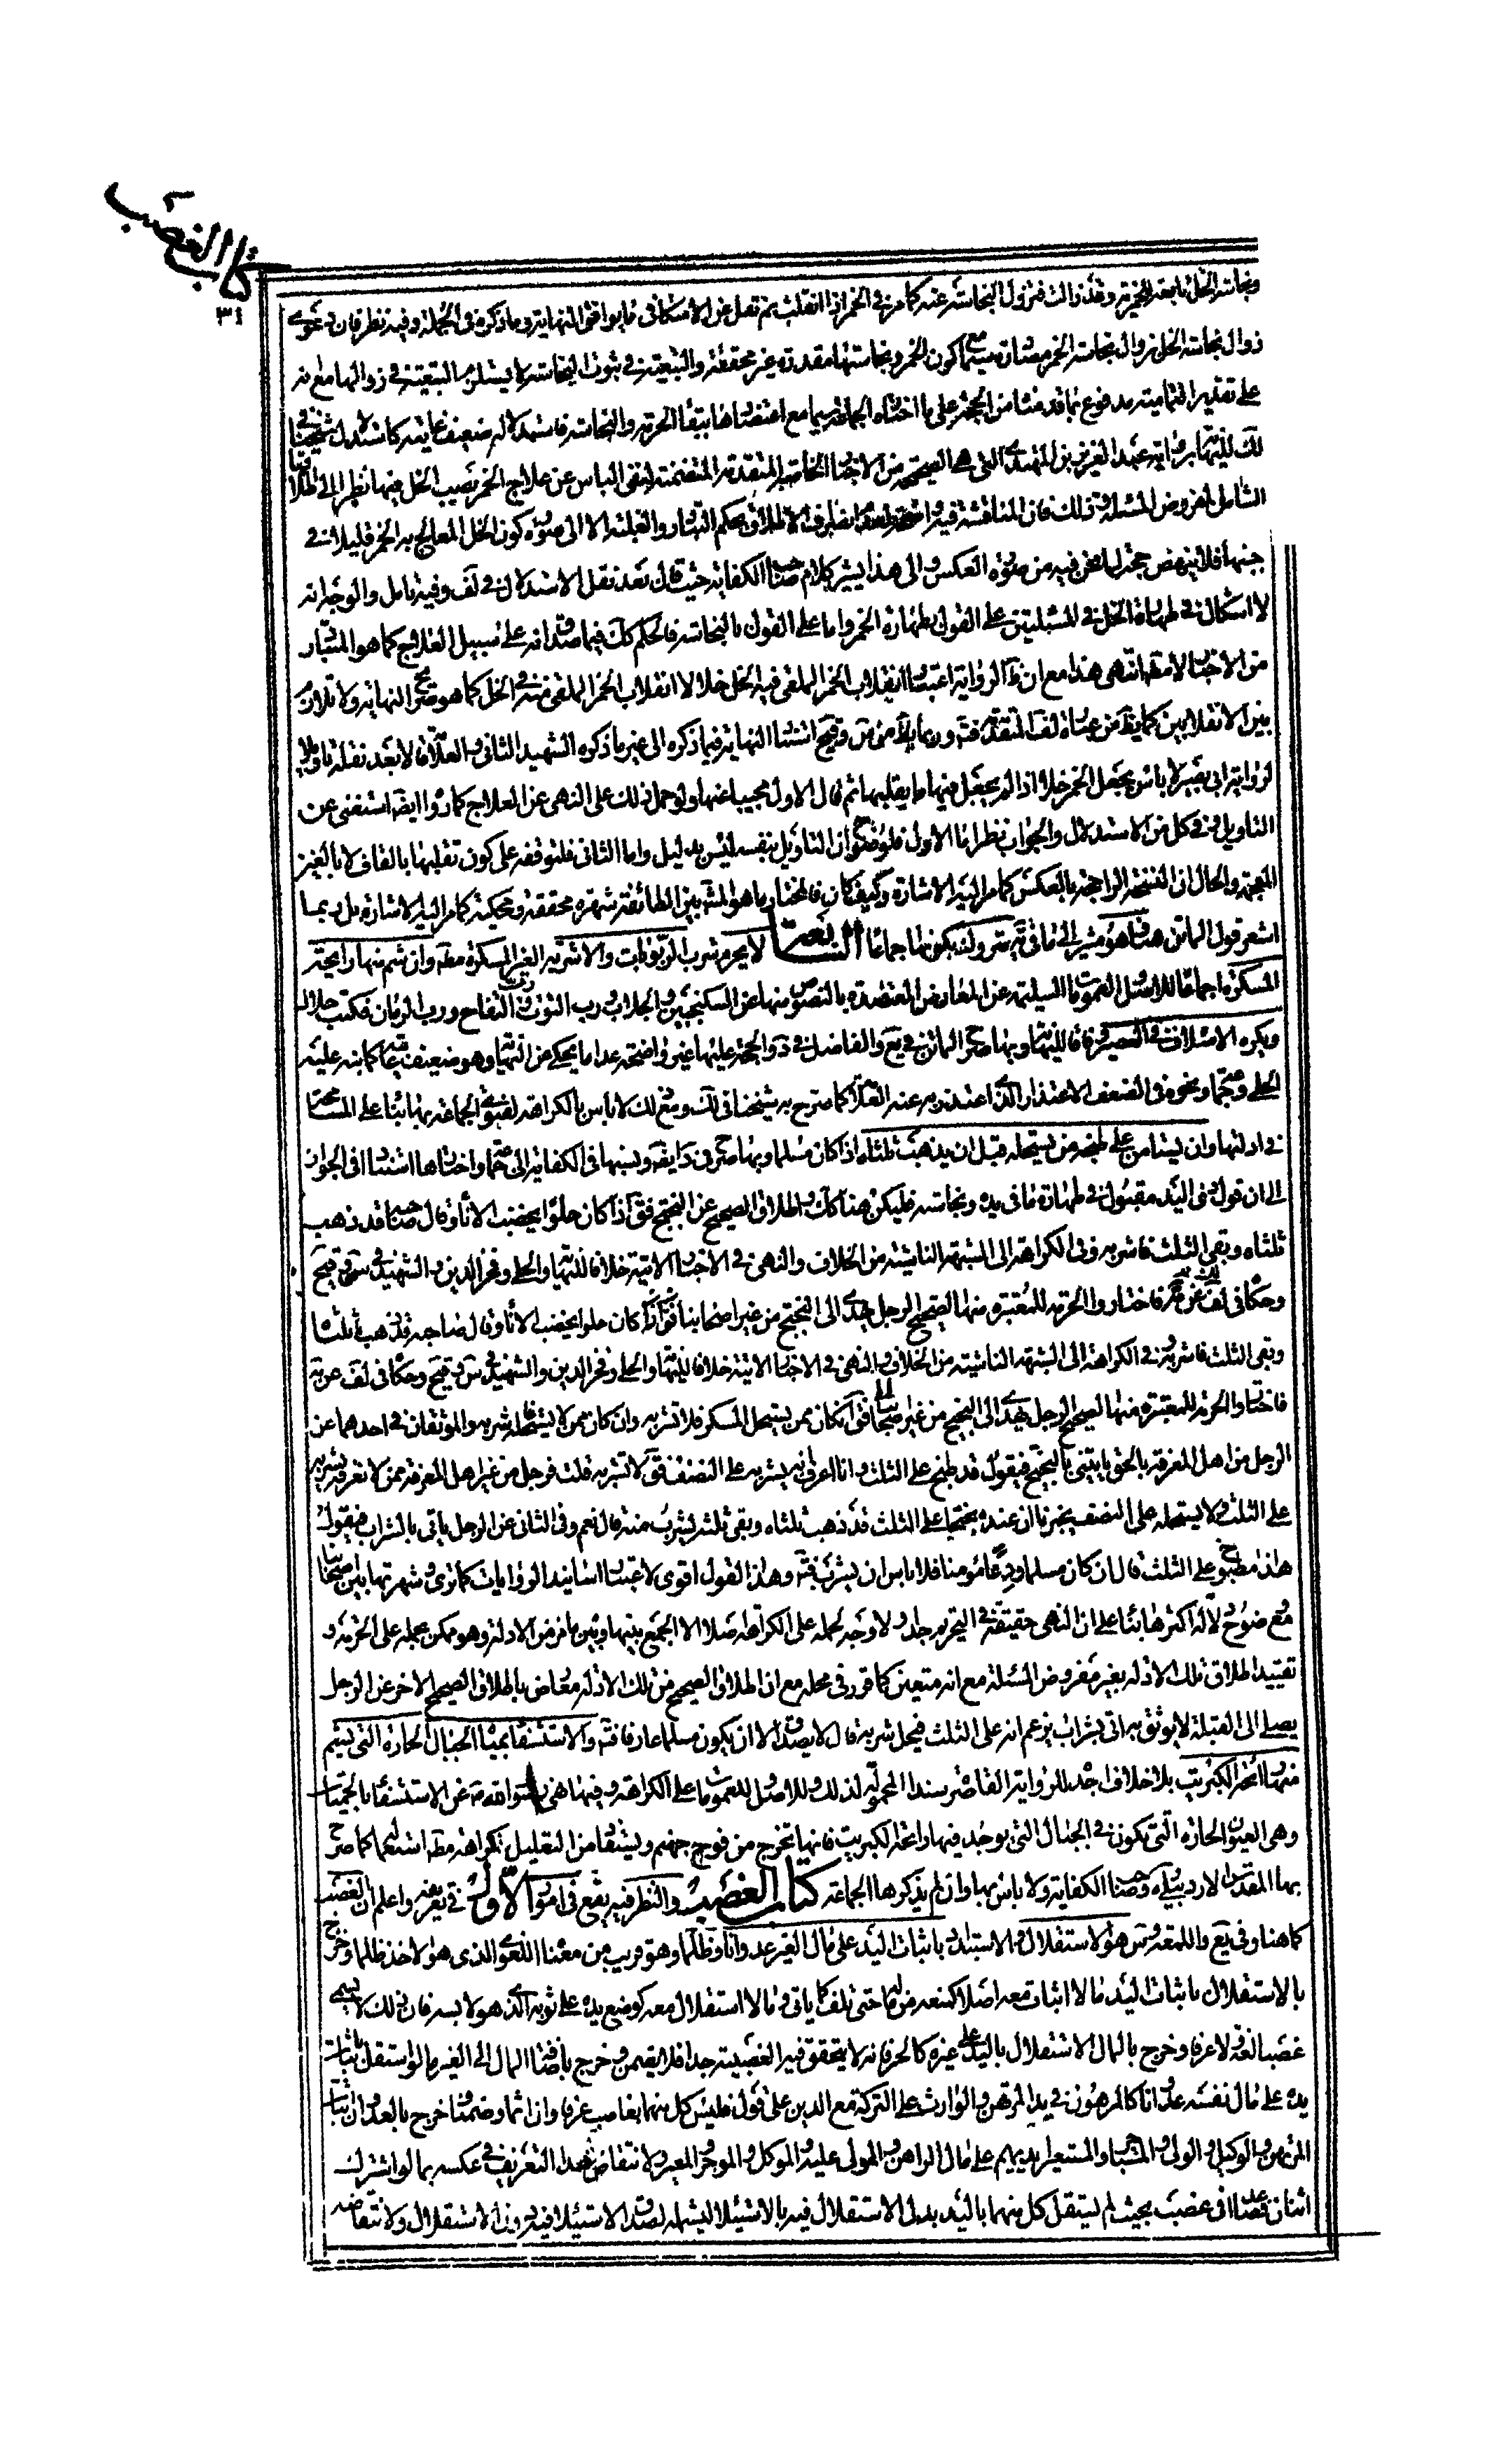 كتاب الغصب
٣٤
ونجاسة الخل تابعة للخمرية وقد زالت فتزول النجاسة عنه كما مر في الخمر اذا انقلبت ثم نقل عن الاسكافي ما يوافق النهاية وما ذكره في الجملة وفيه نظر فان دعوى
زوال نجاسة الخل بزوال نجاسة الخمر مصادرة سيما مع كون الخمر ونجاستها مقدرة غير محققة والتبعية في ثبوت النجاسة لا يستلزم التبعية في زوالها مع انه
على تقدير التمامية مدفوع بما قدمناه من الحجة على ما اختاره الجماعة سيما مع اعتضادها ببقاء الحرمة والنجاسة فاستدلاله ضعيف غايته كاستدلال شيخنا في
لك للنهاية برواية عبد العزيز بن المهتدي التي هي الصحيحة من الاخبار الخاصة المتقدمة المتضمنة لنفي الباس عن علاج الخمر بصب الخل فيها نظرا الى اطلاقها
الشامل لمفروض المسئلة وذلك فان المناقشة فيه واضحة لعدم انصراف الاطلاق بحكم التبادر والغلبة الا الى صورة كون الخل المعالج به الخمر قليلا في
جنبها فلا ينهض حجة لما نحن فيه من صورة العكس والى هذا يشير كلام صاحب الكفاية حيث قال بعد نقل الاستدلال في لف وفيه تامل والوجه انه
لا اشكال في طهارة الخل في المسئلتين على القول بطهارة الخمر واما على القول بالنجاسة فالحكم كك فيما صدق انه على سبيل العلاج كما هو المتبادر
من الاخبار الامتها انتهى هذا مع ان ظ الرواية اعتبار انقلاب الخمر الملقى فيه الخل خلا لا انقلاب الخمر الملقى منه في الخل كما هو صريح النهاية ولا تلازم
بين الانقلابين كما يظ من عبارة لف المتقدمة فتد وربما يظ من س وقيح استناد النهاية فيما ذكره الى غير ما ذكره الشهيد الثاني والعلامة لا بعد نقله تاويلا
لرواية ابي بصير لا باس بجعل الخمر خلا اذا لم يجعل فيها ما يقلبها ثم قال الاول مجيبا عنها ولو حمل ذلك على النهي عن العلاج كما رواه ايضا استغنى عن
التاويل وفي كل من الاستدلال والجواب نظر اما الاول فلوضوح ان التاويل بنفسه ليس بدليل واما الثاني فلتوقفه على كون تقلبها بالقاف لا بالغين
المعجمة والحال ان النسخة الراجحة بالعكس كما مر اليه الاشارة وكيف كان فالمختار ما هو المشهور بين الطائفة شهرة محققة ومحكية كما مر اليه الاشارة بل ربما
اشعر قول الماتن هنا هو مشير الى ما في ية بكونها جماعا التاسعة لا يحرم شرب الربوبات والاشربة الغير المسكرة مط وان شم منها رايحة
المسكرة اجماعا للاصل والعمومات السليمة عن المعارض المعتضدة بالنصوص منها عن السكنجبين والجلاب ورب التوت ورب التفاح ورب الرمان فكتب حلال
ويكره الاستلاف في العصير وفاقا للنهاية وبها صرح الماتن في يع والفاضل في د والحجة عليها غير واضحة عدا ما يحكى عن النهاية وهو ضعيف كما نبه عليه
الحلي ونحوه في الضعف الاعتذار الذي اعتذر به عنه العلامة كما صرح به شيخنا في لك ومع ذلك لا باس بالكراهة لفتوى الجماعة بها بناء على المسامحة
في ادلتها وان يستامن على طبخه من يستحله قبل ان يذهب ثلثاه اذا كان مسلما وبها صرح في د ايضا ونسبها في الكفاية الى واختارها استنادا في الجواز
الى ان قول ذي اليد مقبول في طهارة ما في يده ونجاسته فليكن هنا كك واطلاق الصحيح عن البختج فقال اذا كان حلوا يخضب الاناء وقال صاحبه قد ذهب
ثلثاه وبقي الثلث فاشربه وفي الكراهة الى الشبهة الناشئة من الخلاف والنهي في الاخبار الاتية خلافا للنهاية والحلي وفخر الدين والشهيد في س وقيح
وحكاه في لف عن فاختاروا الحرمة للمعتبرة منها الصحيح الرجل يهدي الى البختج من غير اصحابنا فقال اذا كان حلوا يخضب الاناء وقال صاحبه قد ذهب ثلثاه
وبقي الثلث فاشربه وفي الكراهة الى الشبهة الناشئة من الخلاف والنهي في الاخبار الاتية خلافا للنهاية والحلي وفخر الدين والشهيد في س وقيح وحكاه في لف عن ية
فاختاروا الحرمة للمعتبرة منها الصحيح الرجل يهدي الى البختج من غير اصحابنا فقال ان كان ممن يستحل المسكر فلا تشربه وان كان ممن لا يستحله فاشربه والموثقان في احدهما عن
الرجل من اهل المعرفة بالحق ياتيني بالبختج فيقول قد طبخ على الثلث وانا اعرف انه يشربه على النصف فقال لا تشربه قلت فرجل من غير اهل المعرفة ممن لا نعرفه يشربه
على الثلث ولا يستحله على النصف يخبرنا ان عنده بختجا على الثلث قد ذهب ثلثاه وبقي ثلثه يشرب منه قال نعم وفي الثاني عن الرجل ياتي بالشراب فيقول
هذا مطبوخ على الثلث قال ان كان مسلما ورعا مؤمنا فلا باس ان يشرب فتد وهذا القول اقوى لاعتبار اسانيد الروايات كما ترى وشهرتها بين اصحابنا
مع وضوح دلالة اكثرها بناء على ان النهي حقيقة في التحريم جدا ولا وجه لحمله على الكراهة اصلا الا الجمع بينها وبين ما مر من الادلة وهو ممكن بحمله على الحرمة و
تقييد اطلاق تلك الادلة بغير مفروض المسئلة مع انه متعين كما قرر في محله مع ان اطلاق الصحيح من تلك الادلة معارض باطلاق الصحيح الاخر عن الرجل
يصلي الى القبلة لا يوثق به اتى بشراب يزعم انه على الثلث فيحل شربه قال لا يصدق الا ان يكون مسلما عارفا فتد والاستشفاء بمياه الجبال الحارة التي يشم
منها رائحة الكبريت بلا خلاف اجده للرواية القاصر سندا المحمولة لذلك وللاصل والعمومات على الكراهة وفيها نهى رسول الله ص عن الاستشفاء بالحميات
وهي العيون الحارة التي تكون في الجبال التي يوجد فيها رائحة الكبريت فانها تخرج من فوح جهنم ويستفاد من التعليل كراهة مط استعمالها كما صرح
بها المقدس الاردبيلي ره وصاحب الكفاية ولا باس بها وان لم يذكرها الجماعة كتاب الغصب والنظر فيه يقع في امور الاول في تعريفه واعلم ان الغصب
كما هنا وفي يع واللمعة وس هو الاستقلال والاستبداد باثبات اليد على مال الغير عدوانا وظلما وهو قريب من معناه اللغوي الذي هو الاخذ ظلما وخرج
بالاستقلال باثبات اليد ما لا اثبات معه اصلا كمنعه من ماله حتى تلف كما ياتي وما لا استقلال معه كوضع يده على ثوبه الذي هو لابسه فان ذلك لا يسمى
غصبا لغة ولا عرفا وخرج بالمال الاستقلال باليد على غيره كالحر فانه لا يتحقق فيه الغصبية جدا فلا يضمن وخرج باضافة المال الى الغير ما لو استقل باثبات
يده على مال نفسه عدوانا كالمرهون في يد المرتهن والوارث على التركة مع الدين على قول فليس كل منهما بغاصب عرفا وان اثما وضمنا وخرج بالعدوان اثبات
المرتهن والوكيل والولي والمستاجر والمستعير يدهم على مال الراهن والمولى عليه والموكل والموجر والمعير ولا نتقاض هذا التعريف في عكسه بما لو اشترك
اثنان فصاعدا في غصب بحيث لم يستقل كل منهما باليد بدل الاستقلال فيه بالاستيلاء ليشمله لصدق الاستيلاء فيه دون الاستقلال ولا نتقاضه